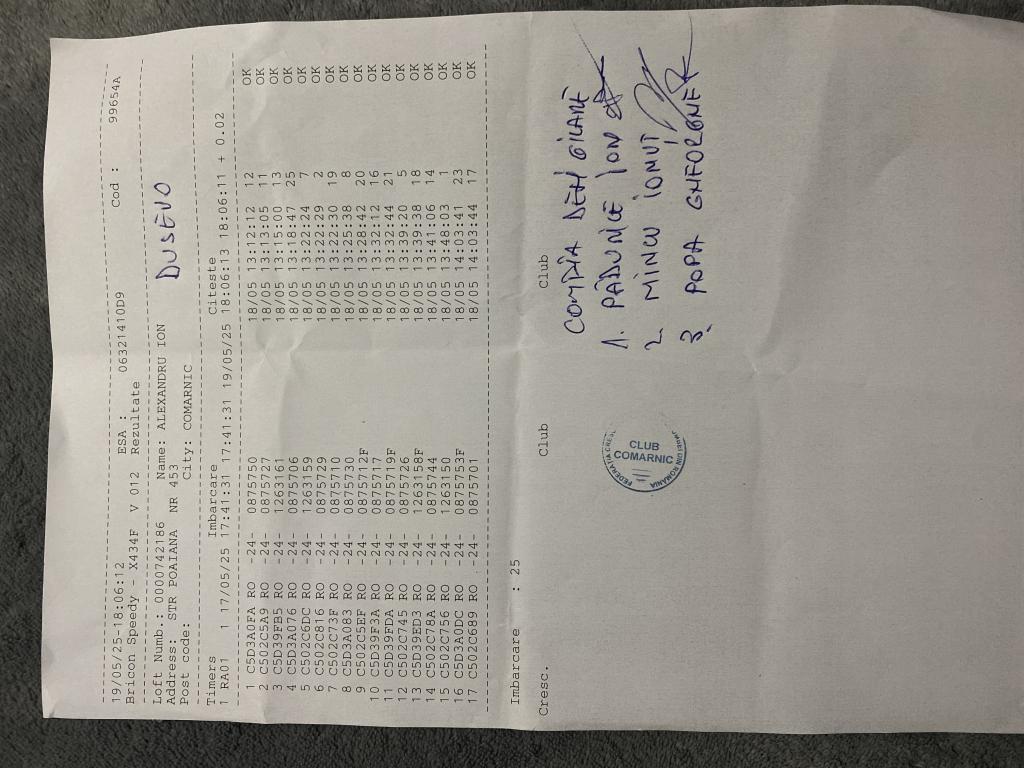 19/05/25-18:06:12 ESA : Cod : 99654A
Bricon Speedy - X434F V 012 Rezultate 06321410D9
Loft Numb.: 0000742186 Name: ALEXANDRU ION
Address: STR POAIANA NR 453 DUSEVO
Post code: City: COMARNIC
Timers Imbarcare Citeste
1 RA01 1 17/05/25 17:41:31 17:41:31 19/05/25 18:06:13 18:06:11 + 0.02
1 C5D3A0FA RO -24- 0875750 18/05 13:12:12 12 OK
2 C502C5A9 RO -24- 0875727 18/05 13:13:05 11 OK
3 C5D39FB5 RO -24- 1263161 18/05 13:15:00 13 OK
4 C5D3A076 RO -24- 0875706 18/05 13:18:47 25 OK
5 C502C6DC RO -24- 1263159 18/05 13:22:24 7 OK
6 C502C816 RO -24- 0875729 18/05 13:22:29 2 OK
7 C502C73F RO -24- 0875710 18/05 13:22:30 19 OK
8 C5D3A083 RO -24- 0875730 18/05 13:25:38 8 OK
9 C502C5EF RO -24- 0875712F 18/05 13:28:42 20 OK
10 C5D39F3A RO -24- 0875717 18/05 13:32:12 16 OK
11 C5D39FDA RO -24- 0875719F 18/05 13:32:44 21 OK
12 C502C745 RO -24- 0875726 18/05 13:39:20 5 OK
13 C5D39ED3 RO -24- 1263158F 18/05 13:39:38 18 OK
14 C502C78A RO -24- 0875744 18/05 13:41:06 14 OK
15 C502C756 RO -24- 1263150 18/05 13:48:03 1 OK
16 C5D3A0DC RO -24- 0875753F 18/05 14:03:41 23 OK
17 C502C689 RO -24- 0875701 18/05 14:03:44 17 OK
Imbarcare : 25
Cresc. Club Club
1. ION
2. MINCU IONUT
3. POPA GHEORGHE
CLUB
COMARNIC